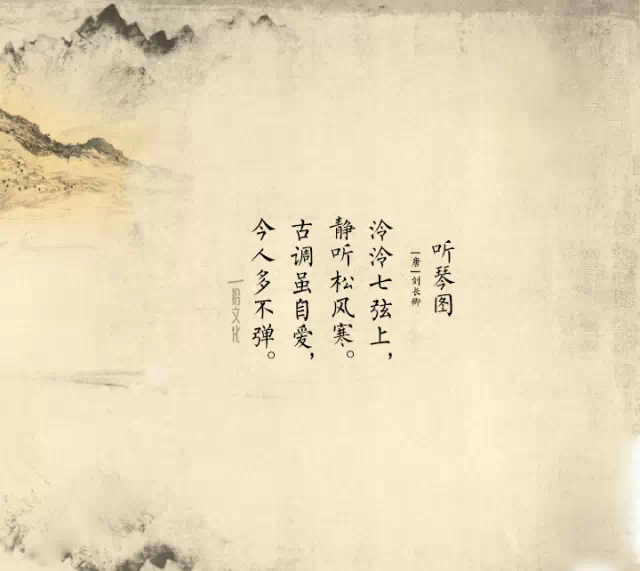 听琴图
[唐]刘长卿
泠泠七弦上，
静听松风寒。
古调虽自爱，
今人多不弹。
一招文化